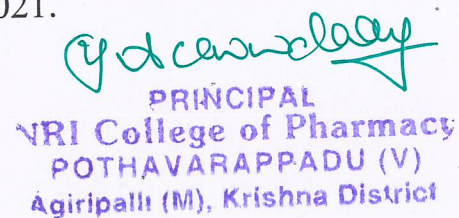 021.
PRINCIPAL
NRI College of Pharmacy
POTHAVARAPPADU (V)
Agiripalli (M), Krishna District